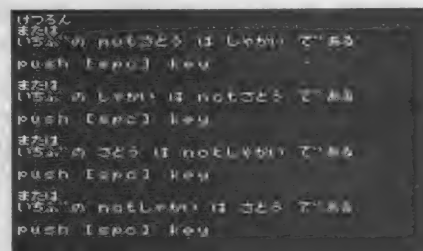 けつろん
または
いちぶ の notさとう は しゃかい で ある
push [spc] key
または
いちぶ の しゃかい は notさとう で ある
push [spc] key
または
いちぶ の さとう は notしゃかい で ある
push [spc] key
または
いちぶ の notしゃかい は さとう で ある
push [spc] key